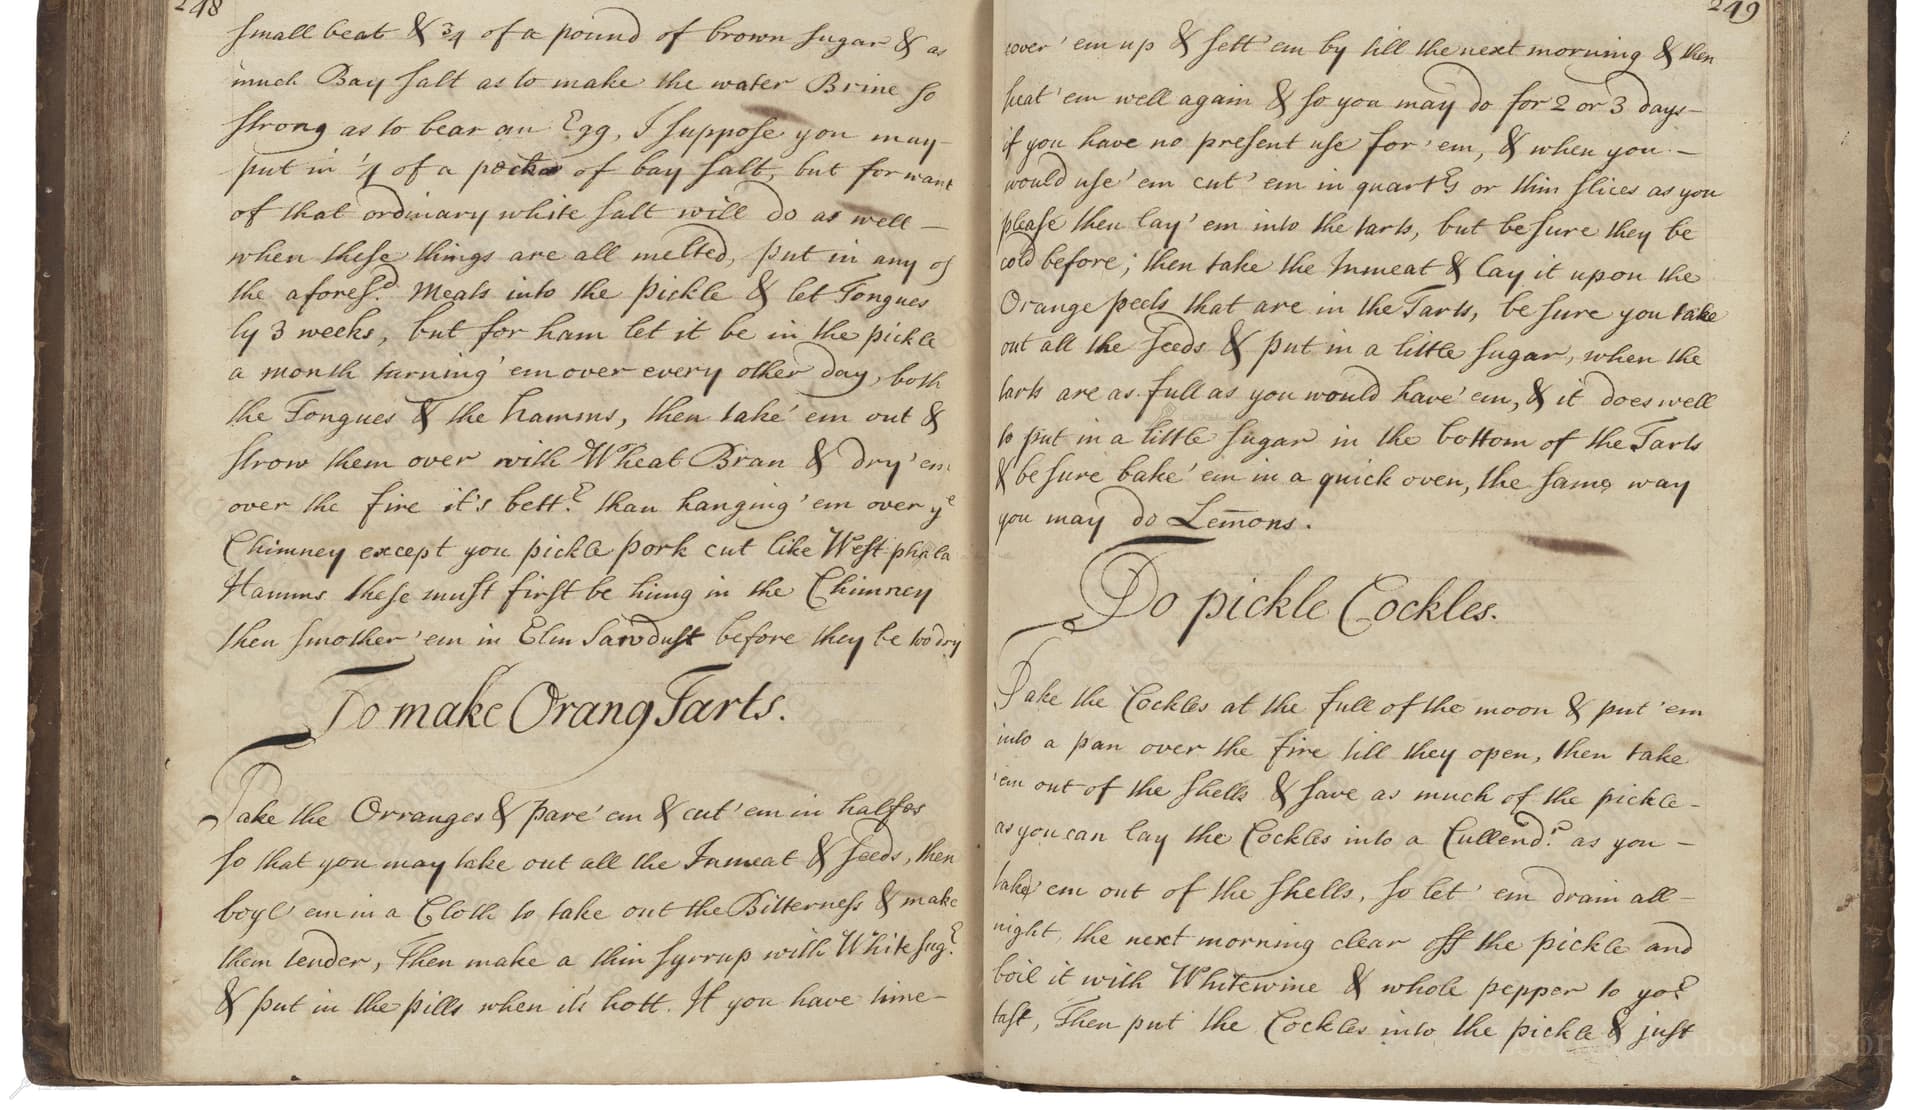 248
small beat & 3/4 of a pound of brown sugar & as
much Bay salt as to make the water Brine so
strong as to bear an Egg, I suppose you may
put in 1/4 of a peck of bay salt, but for want
of that ordinary white salt will do as well –
when these things are all melted, put in any of
the afores.d Meats into the pickle & let Tongues
ly 3 weeks, but for ham let it be in the pickle
a month turning 'em over every other day, both
the Tongues & the hamms, then take 'em out &
strow them over with Wheat Bran & dry 'em
over the fire it's bett.r than hanging 'em over ye
Chimney except you pickle pork cut like Westphala
Hamms these must first be hung in the Chimney
then smother 'em in Elm Sawdust before they be too dry
To make Orang Tarts.
Take the Orranges & pare 'em & cut 'em in halfes
so that you may take out all the Inmeat & seeds, then
boyl 'em in a Cloth to take out the Bitterness & make
them tender, Then make a thin syrrup with White sug.r
& put in the pills when it's hott. If you have time –
249
cover 'em up & sett 'em by till the next morning & then
heat 'em well again & so you may do for 2 or 3 days –
if you have no present use for 'em, & when you –
would use 'em cut 'em in quartrs or thin slices as you
please then lay 'em into the tarts, but be sure they be
cold before; then take the Inmeat & lay it upon the
Orange peels that are in the Tarts, be sure you take
out all the seeds & put in a little sugar, when the
tarts are as full as you would have 'em, & it does well
to put in a little sugar in the bottom of the Tarts
& be sure bake 'em in a quick oven, the same way
you may do Lem̅ons.
To pickle Cockles.
Take the Cockles at the full of the moon & put 'em
into a pan over the fire till they open, then take
'em out of the shells & save as much of the pickle –
as you can lay the Cockles into a Cullend.r as you –
take 'em out of the shells, so let 'em drain all –
night, the next morning clear off the pickle and
boil it with Whitewine & whole pepper to yo.r
tast, Then put the Cockles into the pickle & just